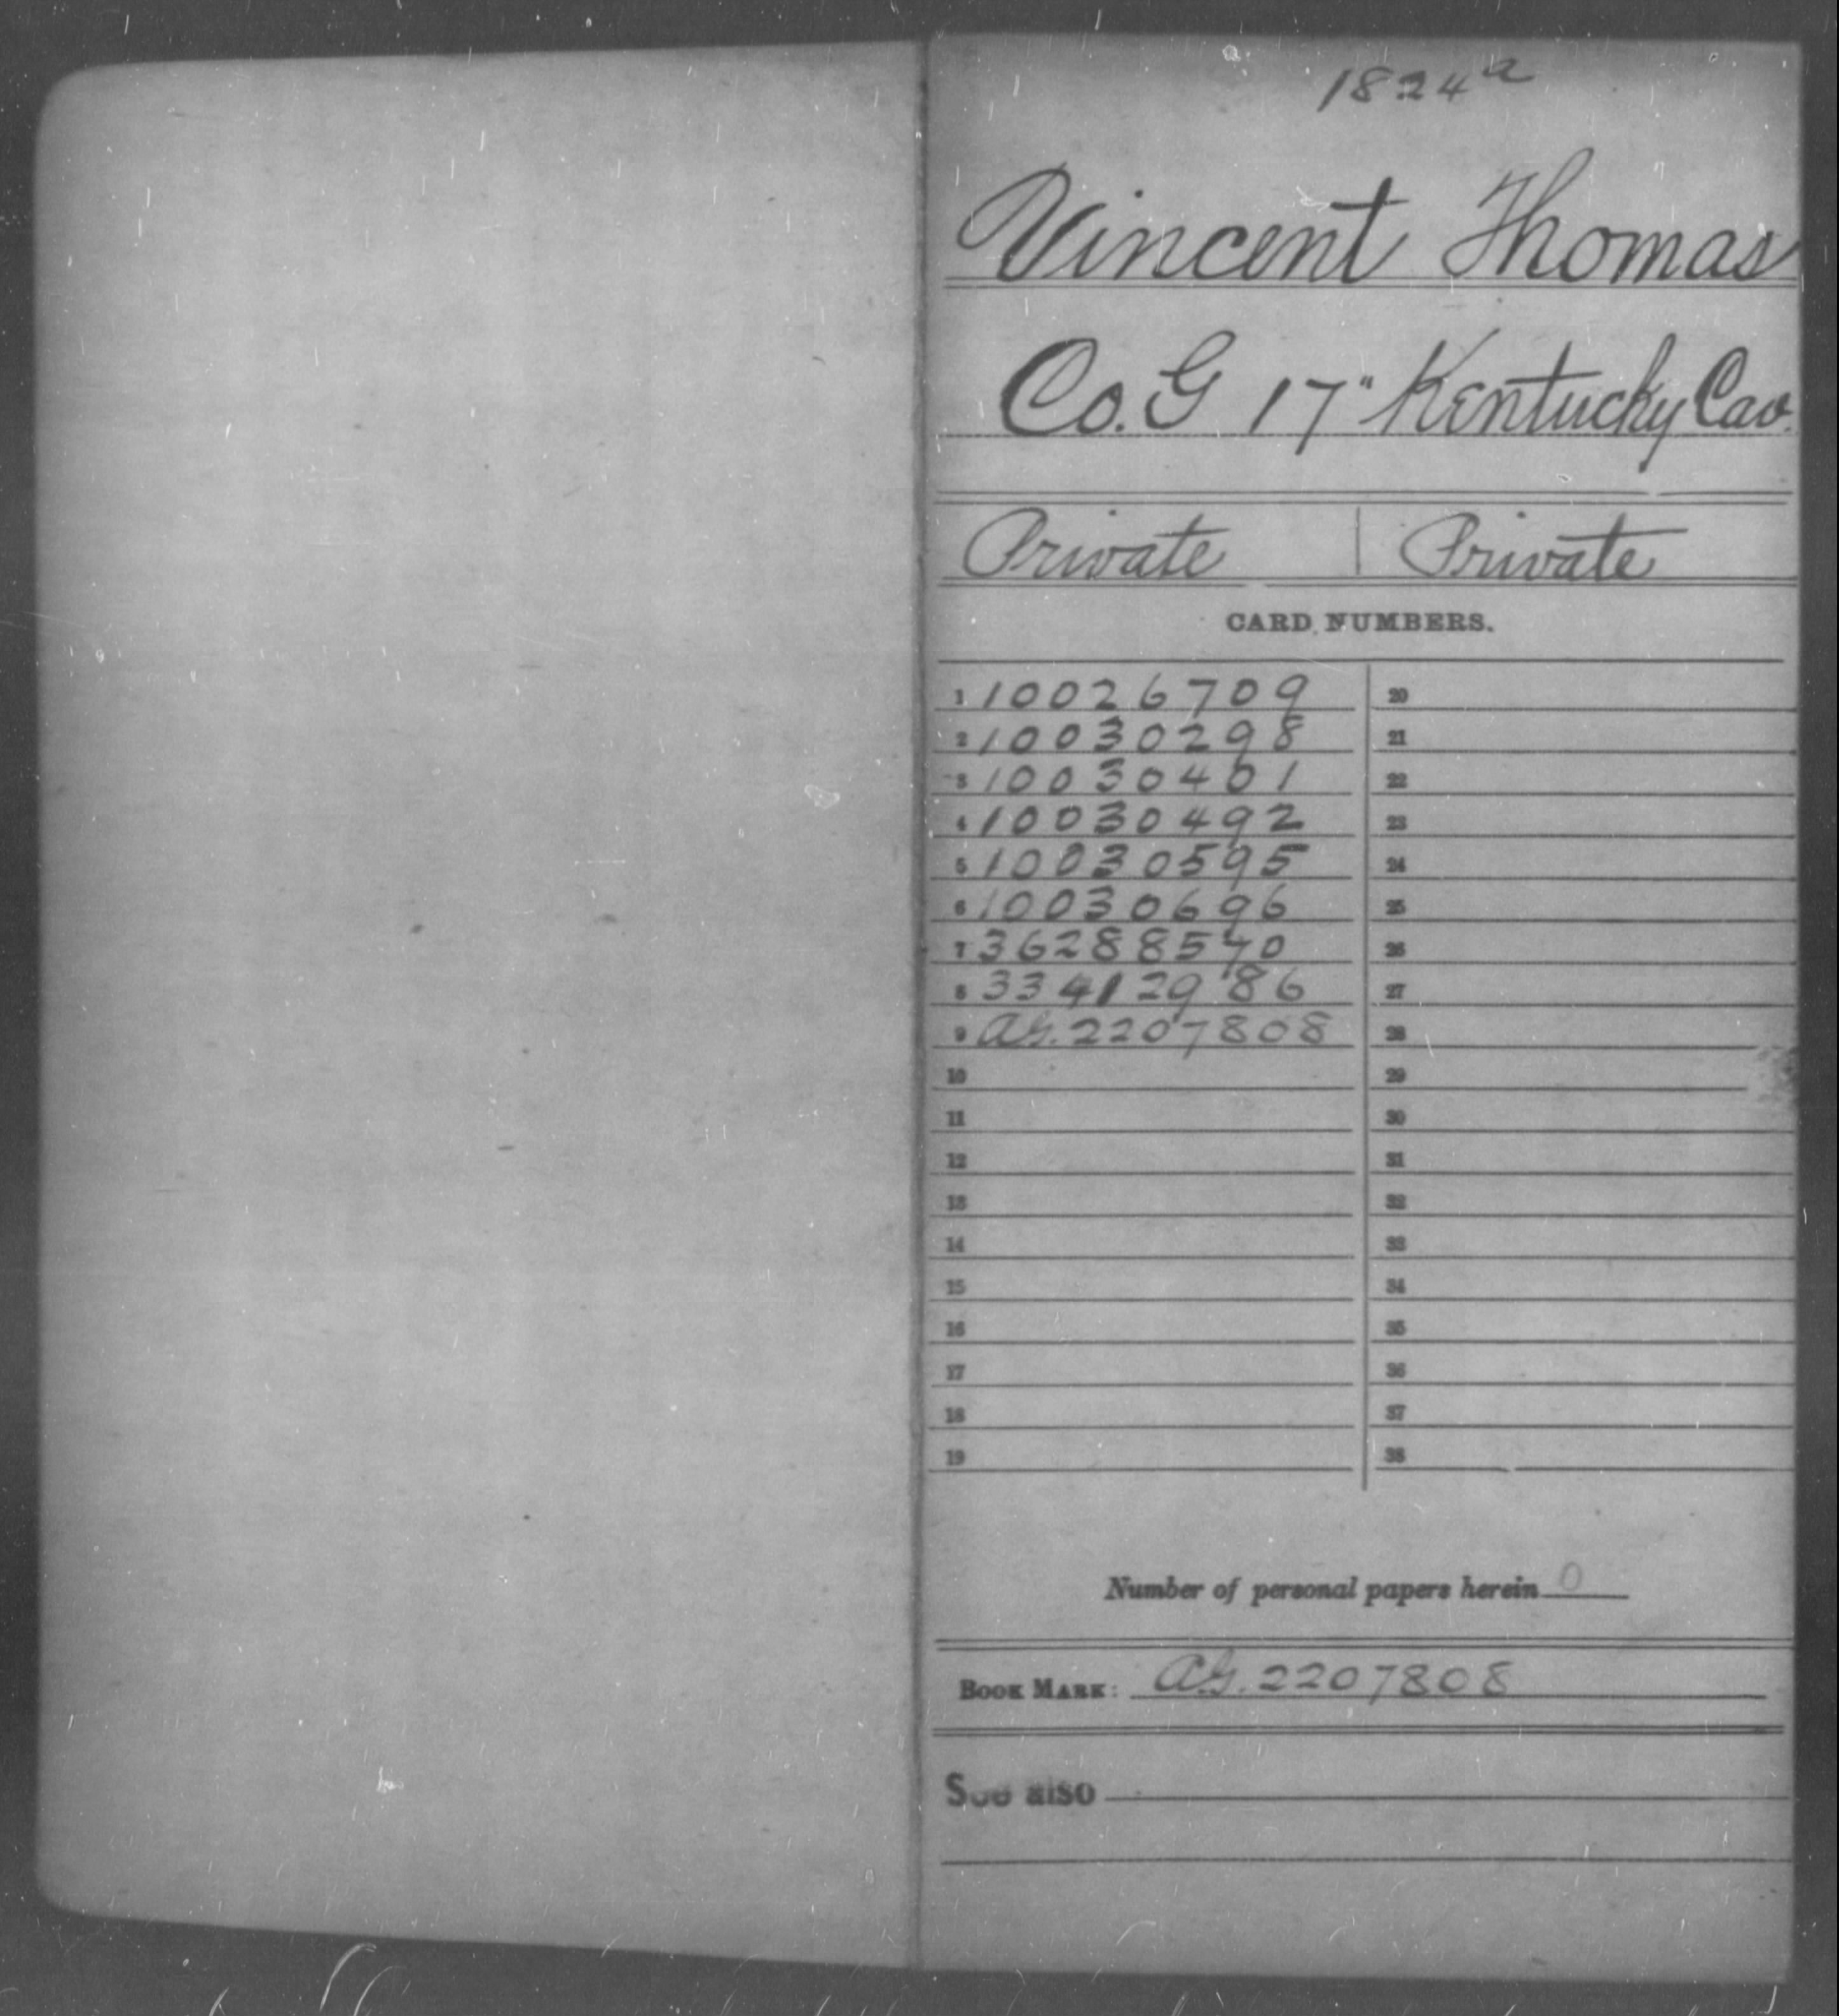 1824 a
Vincent Thomas
Co. G 17" Kentucky Cav.
Private | Private
CARD NUMBERS.
1 10026709 20
2 10030298 21
3 10030401 22
4 10030492 23
5 10030595 24
6 10030696 25
7 36288540 26
8 33412986 27
9 A.G. 2207808 28
10 29
11 30
12 31
13 32
14 33
15 34
16 35
17 36
18 37
19 38
Number of personal papers herein 0
BOOK MARK: A.G. 2207808
See also